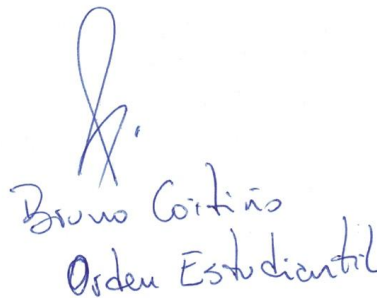 Bruno Coitiño
Orden Estudiantil